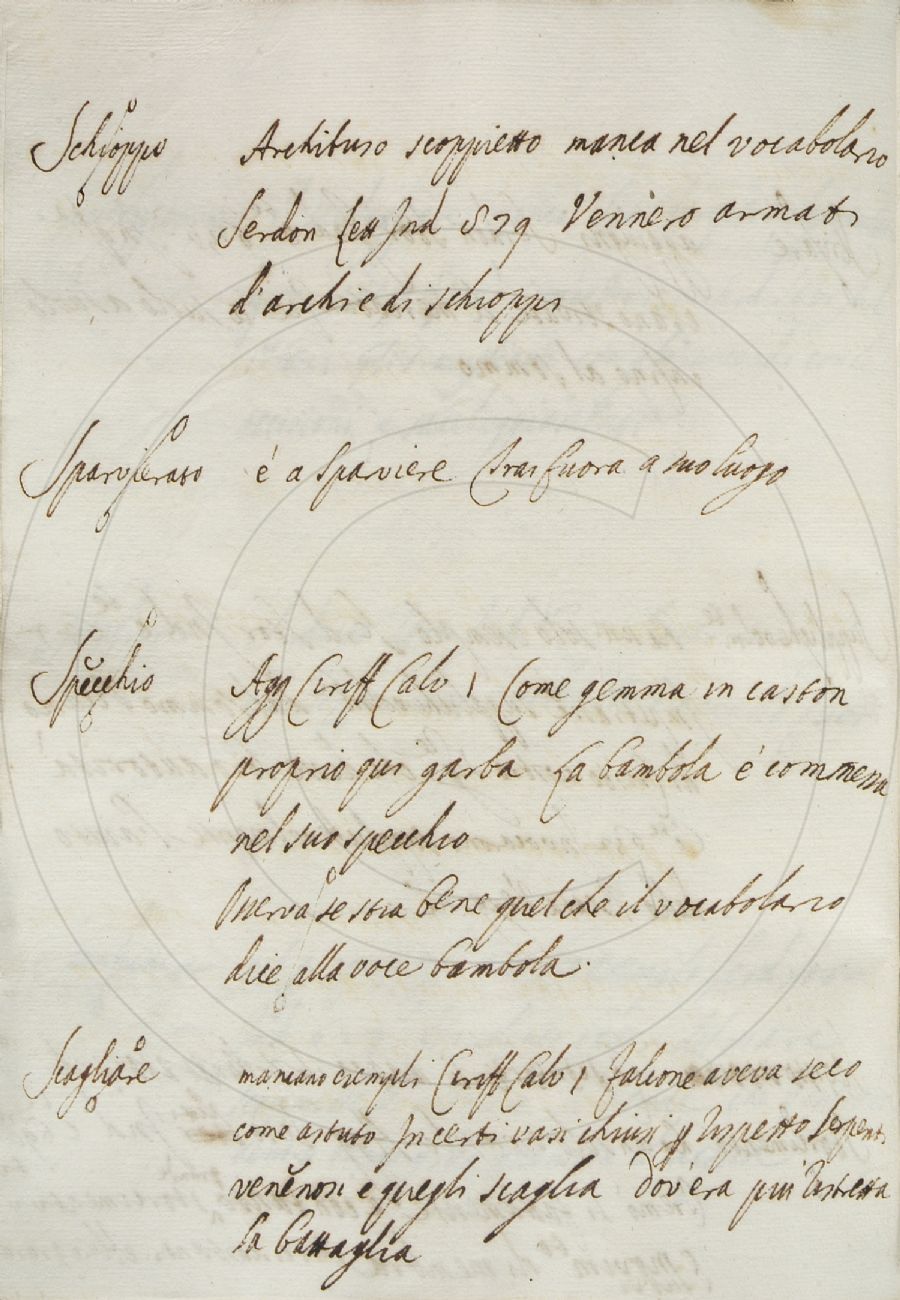 Schioppo Archibuso scoppietto manca nel vocabolario
Serdon Lett Ind 879 Vennero armati
d'archi e di schioppi
Sparvierato é a Sparviere trai fuora a suo luogo
Specchio Agg Ciriff Calv 1 Come gemma in caston
proprio qui garba La bambola é commessa
nel suo specchio
Osserva se stia bene quel che il vocabolario
dice alla voce bambola.
Scagliare mancano esempli Ciriff Calv 1 Falcone aveva seco
come astuto In certi vasi chiusi p rispetto Serpenti
venenosi e quegli scaglia Dov'era piu ristretta
la battaglia